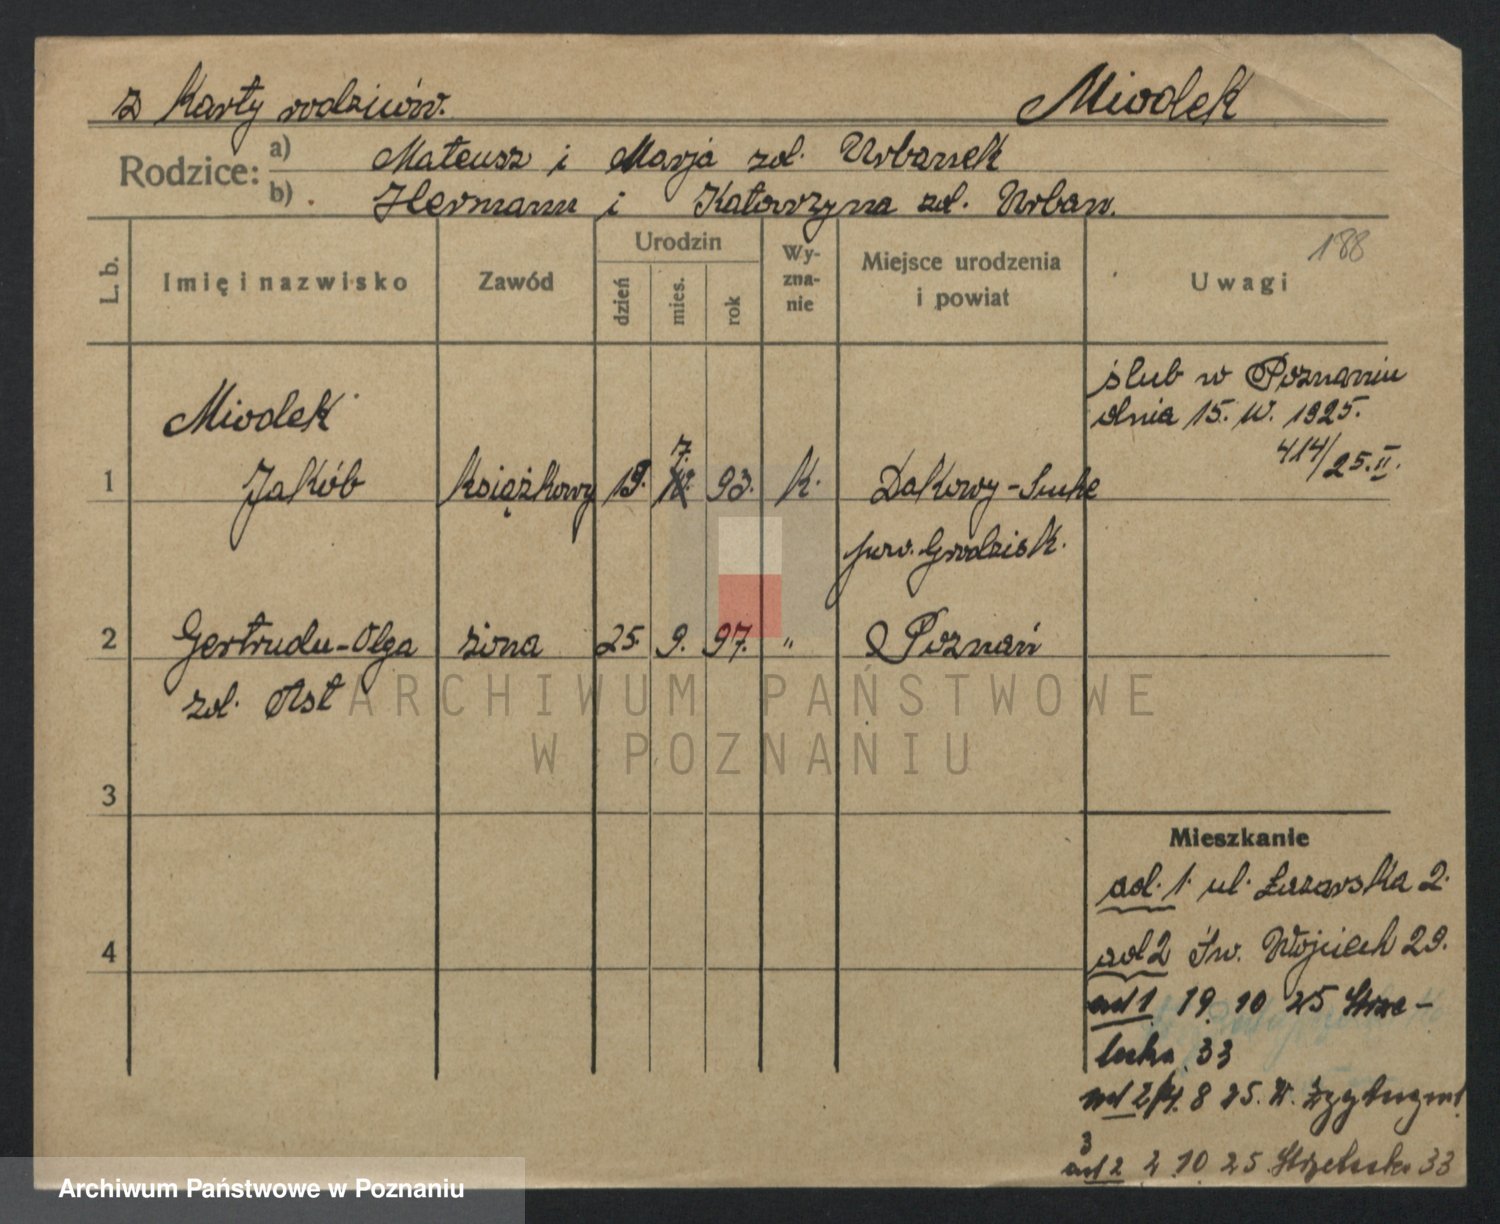 z Karty rodziców.
Miodek
Rodzice:
a) Mateusz i Marja zd. Urbanek
b) Hermann i Katarzyna zd. Urban.
188
L. b.
Imię i nazwisko
Zawód
Urodzin
dzień
mies.
rok
Wy-
zna-
nie
Miejsce urodzenia
i powiat
Uwagi
ślub w Poznaniu
dnia 15. IV. 1925.
414/25. II.
Miodek
1 Jakób książkowy 19. 7. 93. k. Dakowy-Suche
pow. Grodzisk.
2 Gertruda-Olga żona 25. 9. 97. " Poznań
zd. Ast
ARCHIWUM PAŃSTWOWE
W POZNANIU
3
Mieszkanie
ad. 1. ul. Łazarska 2.
4
ad 2 Św. Wojciech 29.
ad 1 19 10 25 Strze-
lecka 33
ad 2 8 25.
3
ad 2 2 10 25 Strzelecka 33
Archiwum Państwowe w Poznaniu